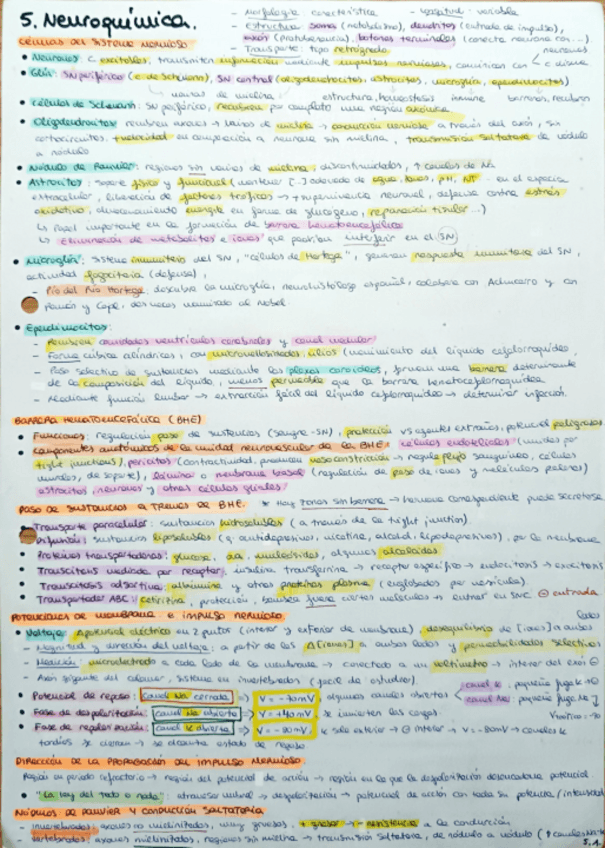 5. Neuroquímica.
- Morfología característica - variable
- Estructura: soma (metabolismo), dendritas (entrada de impulso),
axón (protuberancia), botones terminales (conecta neurona con...).
- Transporte: tipo retrógrado.
CÉLULAS DEL SISTEMA NERVIOSO
• Neuronas: c excitables, transmiten información mediante impulsos nerviosos, comunican con neuronas
• Glía: SN periférico (c de Schwann), SN central (oligodendrocitos, astrocitos, microglía, ependimocitos)
vainas de mielina estructura, homeostasis inmune barreras, recubren
• Células de Schwann: SN periférico, recubren por completo una región axónica.
• Oligodendrocitos: recubren axones → vainas de mielina → conducción nerviosa a través del axón, sin
cortocircuitos. + velocidad en comparación a neurona sin mielina, transmisión saltatoria de nódulo
a nódulo
• Nódulo de Ranvier: regiones sin vainas de mielina, discontinuidades, ↑ canales de Na
• Astrocitos: soporte físico y funcional (mantener [..] adecuado de agua, iones, pH, NT en el espacio
extracelular, liberación de factores tróficos → supervivencia neuronal, defensa contra estrés
oxidativo, almacenamiento energía en forma de glucógeno, reparación tisular...)
↳ Papel importante en la formación de barrera hematoencefálica
↳ Eliminación de metabolitos e iones que podrían interferir en el SN
• Microglía: sistema inmunitario del SN, "células de Hortega", generan respuesta inmunitaria del SN,
actividad fagocitaria (defensa),
- Pío del Río Hortega: descubre la microglía, neurohistólogo español, colabora con Achúcarro y con
Ramón y Cajal, dos veces nominado al Nobel.
• Ependimocitos:
- Revisten cavidades ventrículos cerebrales y canal medular
- Forma cúbica cilíndricos, con microvellosidades, cilios (movimiento del líquido cefalorraquídeo,
- Paso selectivo de sustancias mediante los plexos coroideos, forman una barrera determinante
de la composición del líquido, menos permeable que la barrera hematoencefálica
- Mediante punción lumbar → extracción fácil del líquido cefalorraquídeo → determinar infección.
BARRERA HEMATOENCEFÁLICA (BHE)
• Funciones: regulación paso de sustancias (sangre-SN), protección vs agentes extraños, potencial peligrosos
• Componentes anatómicos de la unidad neurovascular de la BHE: células endoteliales (unidas por
tight junctions), pericitos (contractividad, promueven vasoconstricción → regula flujo sanguíneo, células
murales, de soporte), lámina o membrana basal (regulación de paso de iones y moléculas polares)
astrocitos, neuronas y otras células gliales
PASO DE SUSTANCIAS A TRAVÉS DE BHE. * Hay zonas sin barrera →
• Transporte paracelular: sustancias hidrosolubles (a través de la tight junction).
• Difusión: sustancias liposolubles (g. antidepresivos, nicotina, alcohol, lipodepresivos), por la membrana
• Proteínas transportadoras: glucosa, aa, nucleósidos, algunos alcaloides
• Transcitosis mediada por receptor, insulina transferrina → receptor específico → endocitosis → exocitosis
• Transcitosis adsortiva, albúmina y otras proteínas plasma (englobadas por vesícula).
• Transportador ABC: protección, bombea fuera ciertas moléculas → entrar en SNC ⊖ entrada
POTENCIALES DE MEMBRANA E IMPULSO NERVIOSO
• Voltaje: Δpotencial eléctrico en 2 puntos (interior y exterior de membrana), desequilibrio de [iones] a ambos lados
- Magnitud y dirección del voltaje: a partir de las Δ[iones] a ambos lados y permeabilidades selectivas
- Medición: microelectrodo a cada lado de la membrana → conectado a un voltímetro → interior del axón ⊖
- Axón gigante del calamar, sistema en invertebrados (fácil de estudiar).
• Potencial de reposo: canal Na cerrado ⇒ V = -70mV, algunos canales abiertos canal K: pequeña fuga K→⊖
canal Na: pequeña fuga Na
• Fase de despolarización: canal Na abierto ⇒ V = +40mV se invierten las cargas.
• Fase de repolarización: canal K abierto ⇒ V = -80mV K sale exterior → ⊖ interior → V = -80mV → canales K
tardíos se cierran → se alcanza estado de reposo
DIRECCIÓN DE LA PROPAGACIÓN DEL IMPULSO NERVIOSO.
Región en periodo refractario → región del potencial de acción → región en la que la despolarización desencadena potencial.
• "La ley del todo o nada": atravesar umbral → despolarización → potencial de acción con toda su potencia/intensidad
NÓDULOS DE RANVIER Y CONDUCCIÓN SALTATORIA
- Invertebrados: axones no mielinizados, muy gruesos, + grosor → - resistencia a la conducción
- Vertebrados: axones mielinizados, regiones sin mielina → transmisión saltatoria, de nódulo a nódulo
5.1.